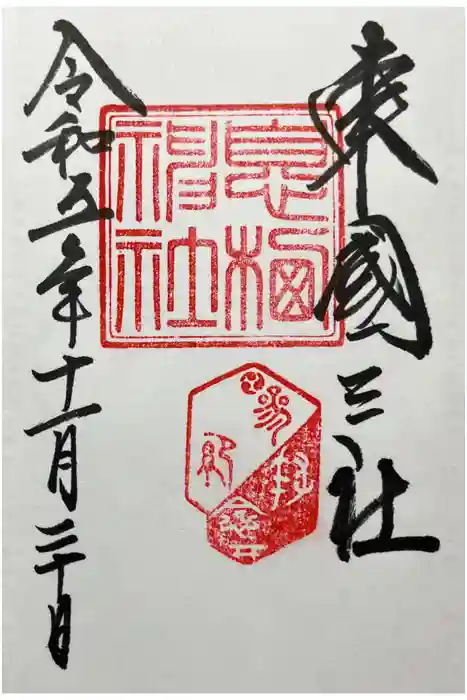 東國三社
息栖神社
令和五年十一月三十日